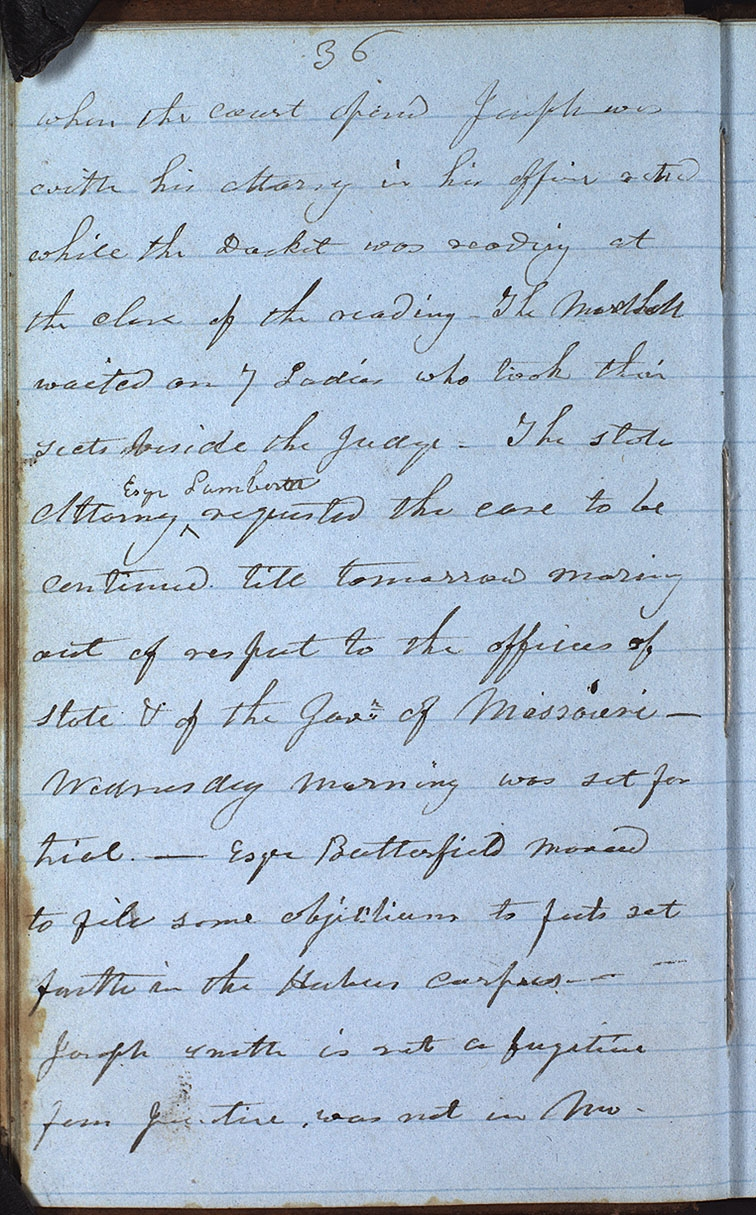 36
when the court opend Joseph was
with his attorny in his office
while the Docket was reading at
the close of the reading - The Marshall
waited on 7 Ladies who took their
seets beside the Judge - The state
Esqr Lamborn
Attorney ^ requested the case to be
continued till tomorrow morning
out of respect to the offices of
state & of the Govr of Missouri —
Wednesday morning was set for
trial. — Esqr Butterfield moved
to file some objections to facts set
forth in the Habeus corpus — —
Joseph smith is not a fugitive
from Justice, was not in Mo-